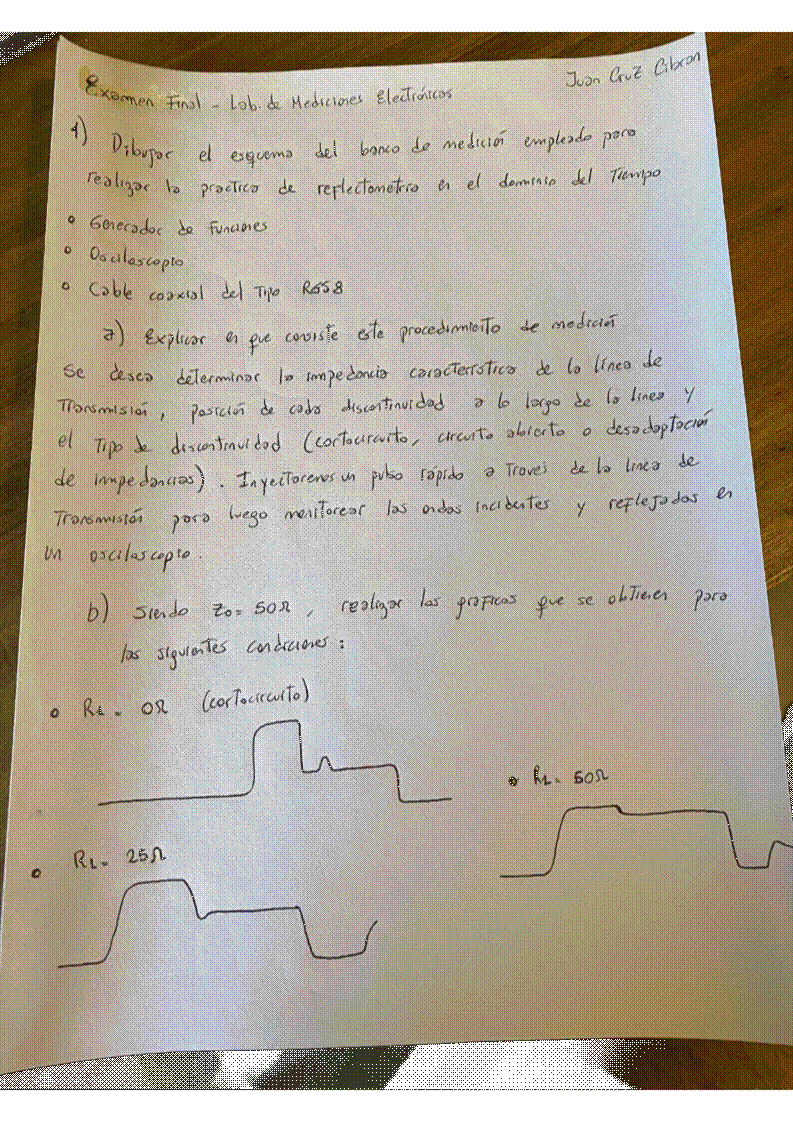 Juan Cruz Cibran
Examen Final - Lab. de Mediciones Electrónicas
1) Dibujar el esquema del banco de medición empleado para
realizar la practica de reflectometria en el dominio del Tiempo
• Generador de Funciones
• Osciloscopio
• Cable coaxial del Tipo RG58
a) Explicar en que consiste este procedimiento de medición
Se desea determinar la impedancia caracteristica de la línea de
Transmisión, posición de cada discontinuidad a lo largo de la linea y
el Tipo de discontinuidad (cortocircuito, circuito abierto o desadaptación
de impedancias). Inyectaremos un pulso rápido a Través de la linea de
Transmisión para luego monitorear las ondas incidentes y reflejadas en
un osciloscopio.
b) Siendo Zo = 50Ω, realizar las graficas que se obtienen para
las siguientes condiciones:
• RL = 0Ω (cortocircuito)
• RL = 50Ω
• RL = 25Ω